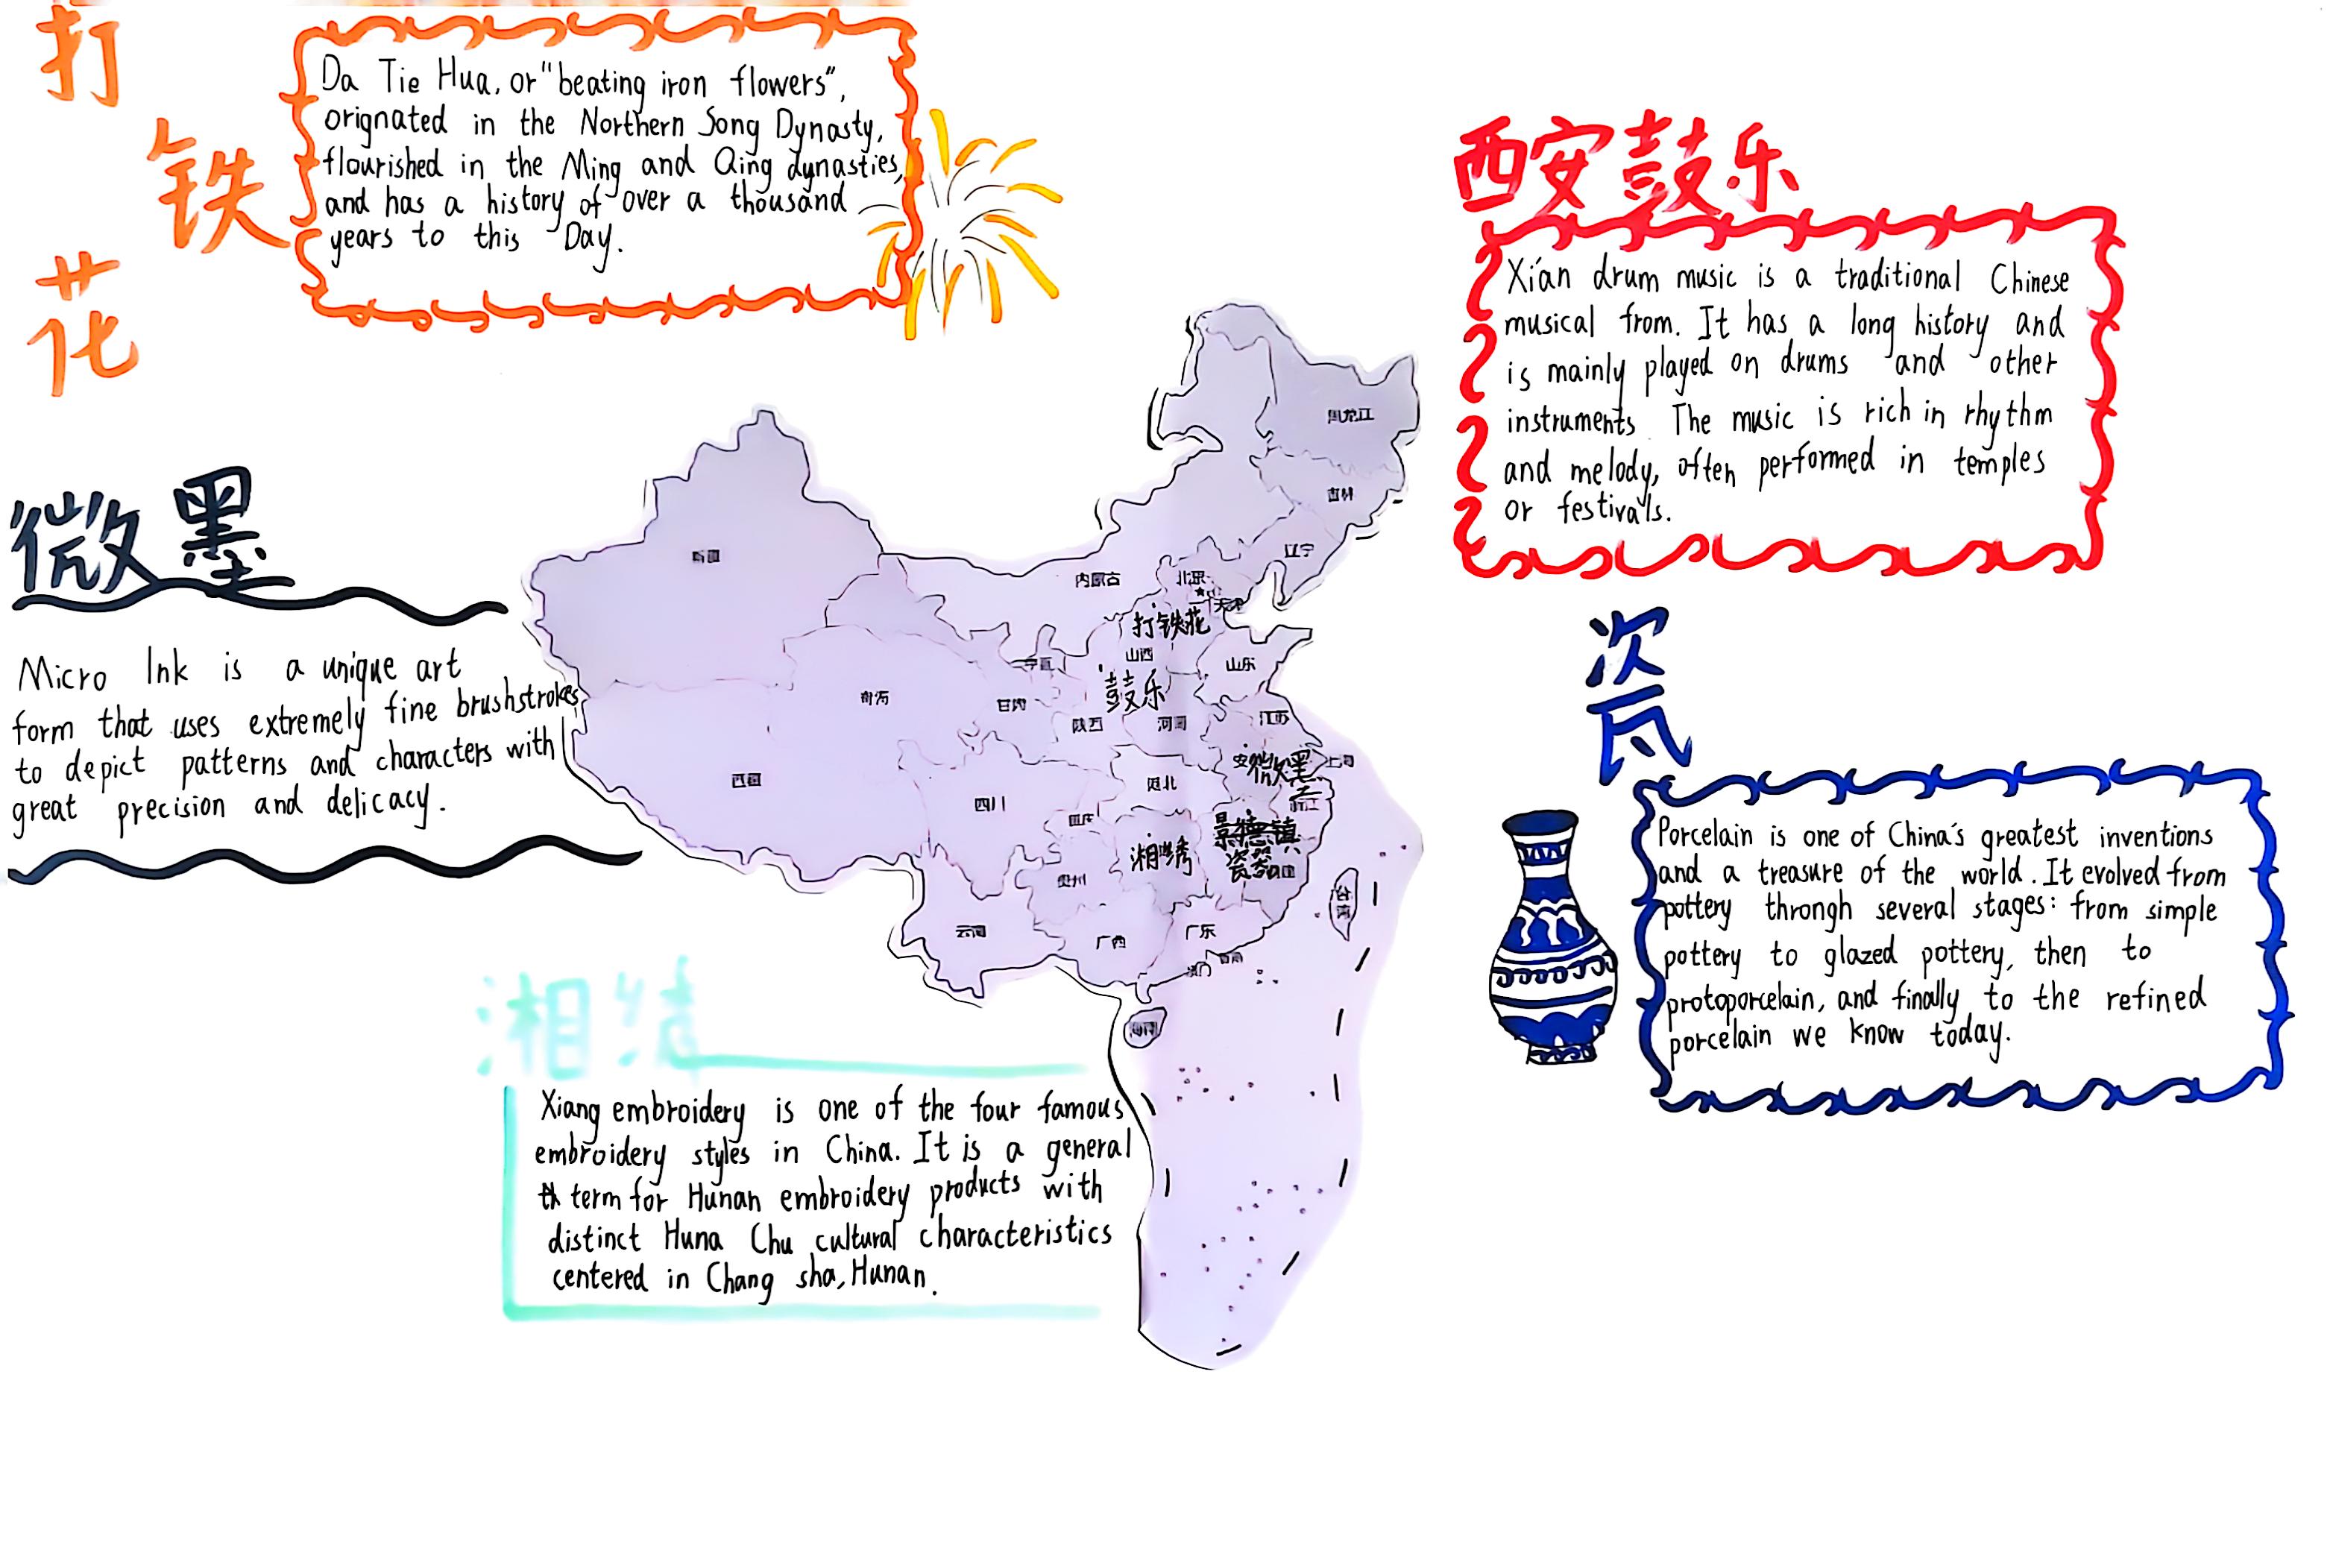 打
铁
花
Da Tie Hua, or "beating iron flowers",
orignated in the Northern Song Dynasty,
flourished in the Ming and Qing dynasties,
and has a history of over a thousand
years to this Day.
西安鼓乐
Xi'an drum music is a traditional Chinese
musical from. It has a long history and
is mainly played on drums and other
instruments The music is rich in rhythm
and melody, often performed in temples
or festivals.
微墨
Micro Ink is a unique art
form that uses extremely fine brushstrokes
to depict patterns and characters with
great precision and delicacy.
瓷
Porcelain is one of China's greatest inventions
and a treasure of the world. It evolved from
pottery through several stages: from simple
pottery to glazed pottery, then to
protoporcelain, and finally to the refined
porcelain we know today.
湘绣
Xiang embroidery is one of the four famous
embroidery styles in China. It is a general
term for Hunan embroidery products with
distinct Huna Chu cultural characteristics
centered in Chang sha, Hunan.
黑龙江
吉林
辽宁
新疆
内蒙古
北京
天津
打铁花
山西
宁夏
山东
鼓乐
青海
甘肃
陕西
河南
江苏
微墨
上海
西藏
四川
湖北
重庆
浙江
景德镇
瓷器
湘绣
贵州
台湾
云南
广西
广东
香港
澳门
海南